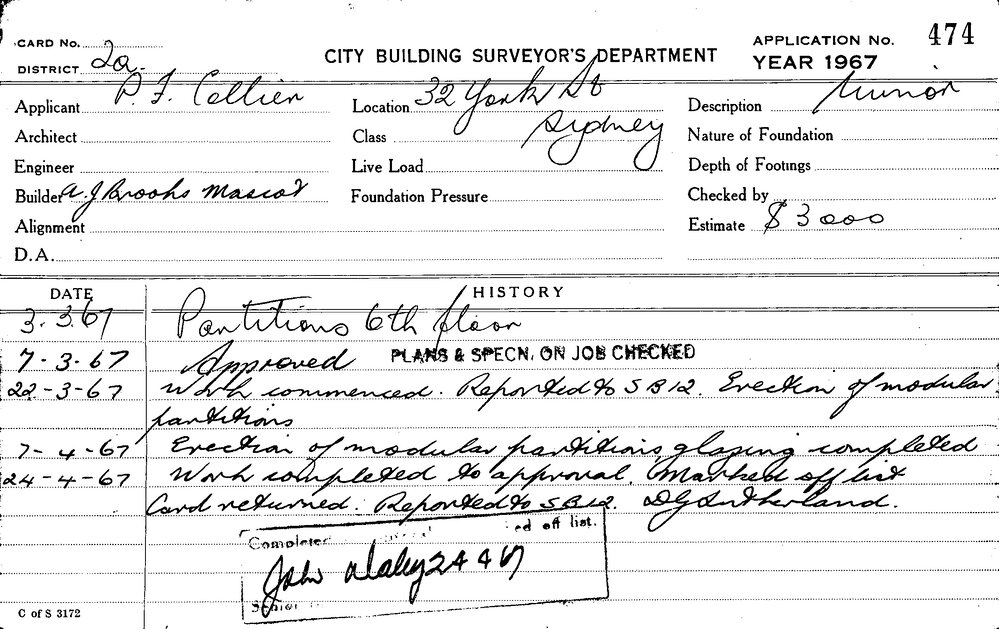 CARD No.
DISTRICT 2a.
CITY BUILDING SURVEYOR'S DEPARTMENT
APPLICATION No. 474
YEAR 1967
Applicant P. F. Collier
Location 32 York St
Sydney
Description Minor
Architect
Class
Nature of Foundation
Engineer
Live Load
Depth of Footings
Builder A. J Brooks Mascot
Foundation Pressure
Checked by
Alignment
Estimate $ 3000
D.A.
DATE
HISTORY
3.3.67 Partitions 6th floor
7-3-67 Approved PLANS & SPECN. ON JOB CHECKED
22-3-67 Work commenced. Reported to SB12. Erection of modular
partitions
7-4-67 Erection of modular partitions glazing completed
24-4-67 Work completed to approval. Marked off list
Card returned. Reported to SB12. D G Sutherland.
Completed ed off list.
John 24 4 67
Senior
C of S 3172